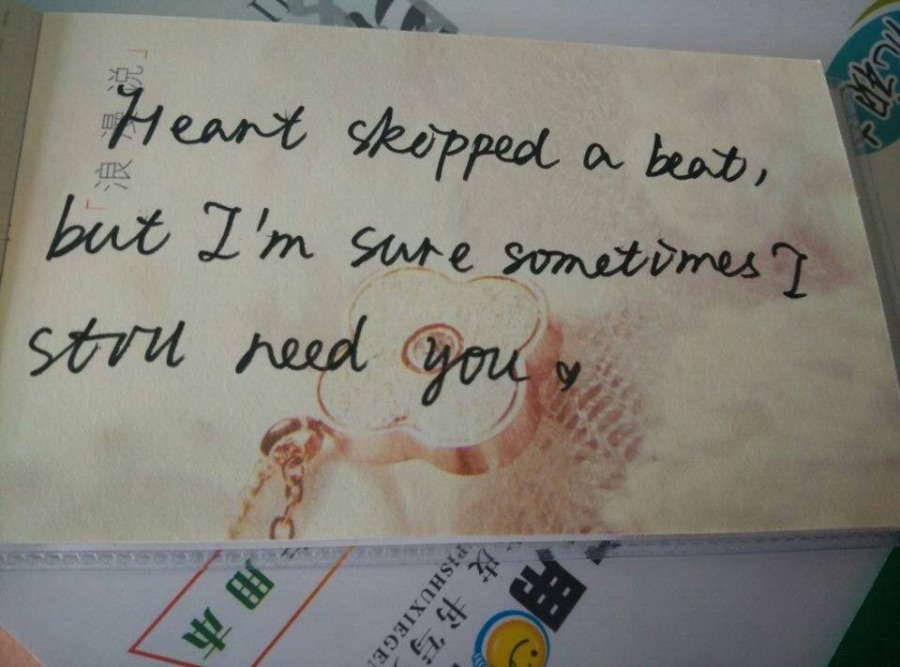 「浪漫说」
Heart skipped a beat,
but I'm sure sometimes I
still need you
用本
皮书写
PISHUXIEGE
用